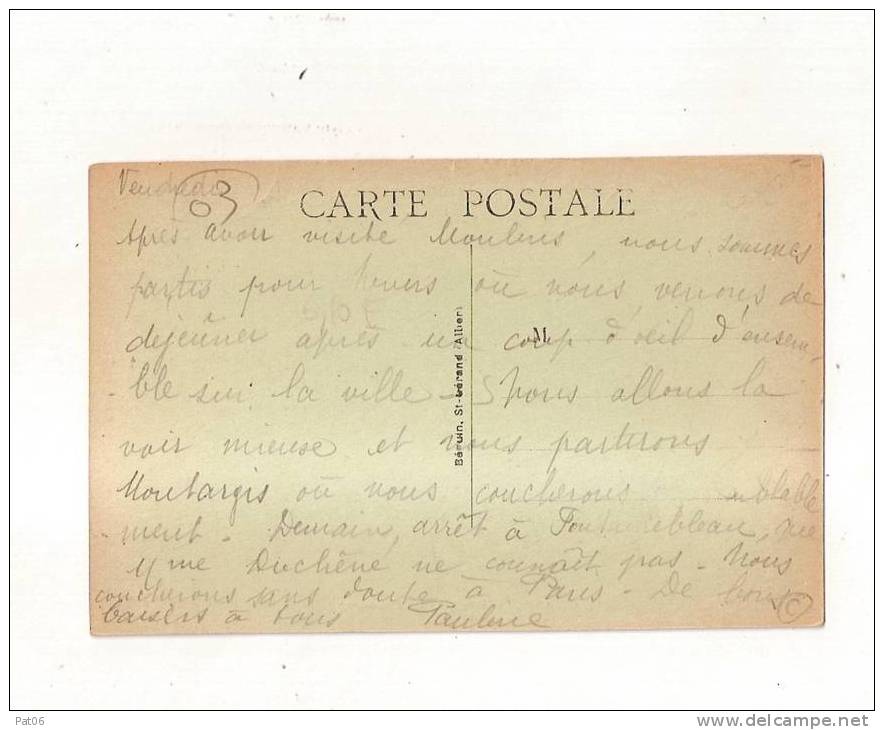 Vendredi
03
CARTE POSTALE
Après avoir visité Moulins, nous sommes
partis pour Nevers où nous venons de
déjeûner après un coup d'oeil d'ensem-
ble sur la ville - Nous allons la
voir mieux et nous partirons
Montargis où nous coucherons
ment - Demain, arrêt à Fontainebleau, que
Mme Duchêne ne connaît pas - Nous
coucherons sans doute à Paris - De bons
baisers à tous Pauline
Béguin, St-Gérand (Allier)
M
C
Pat06
www.delcampe.net